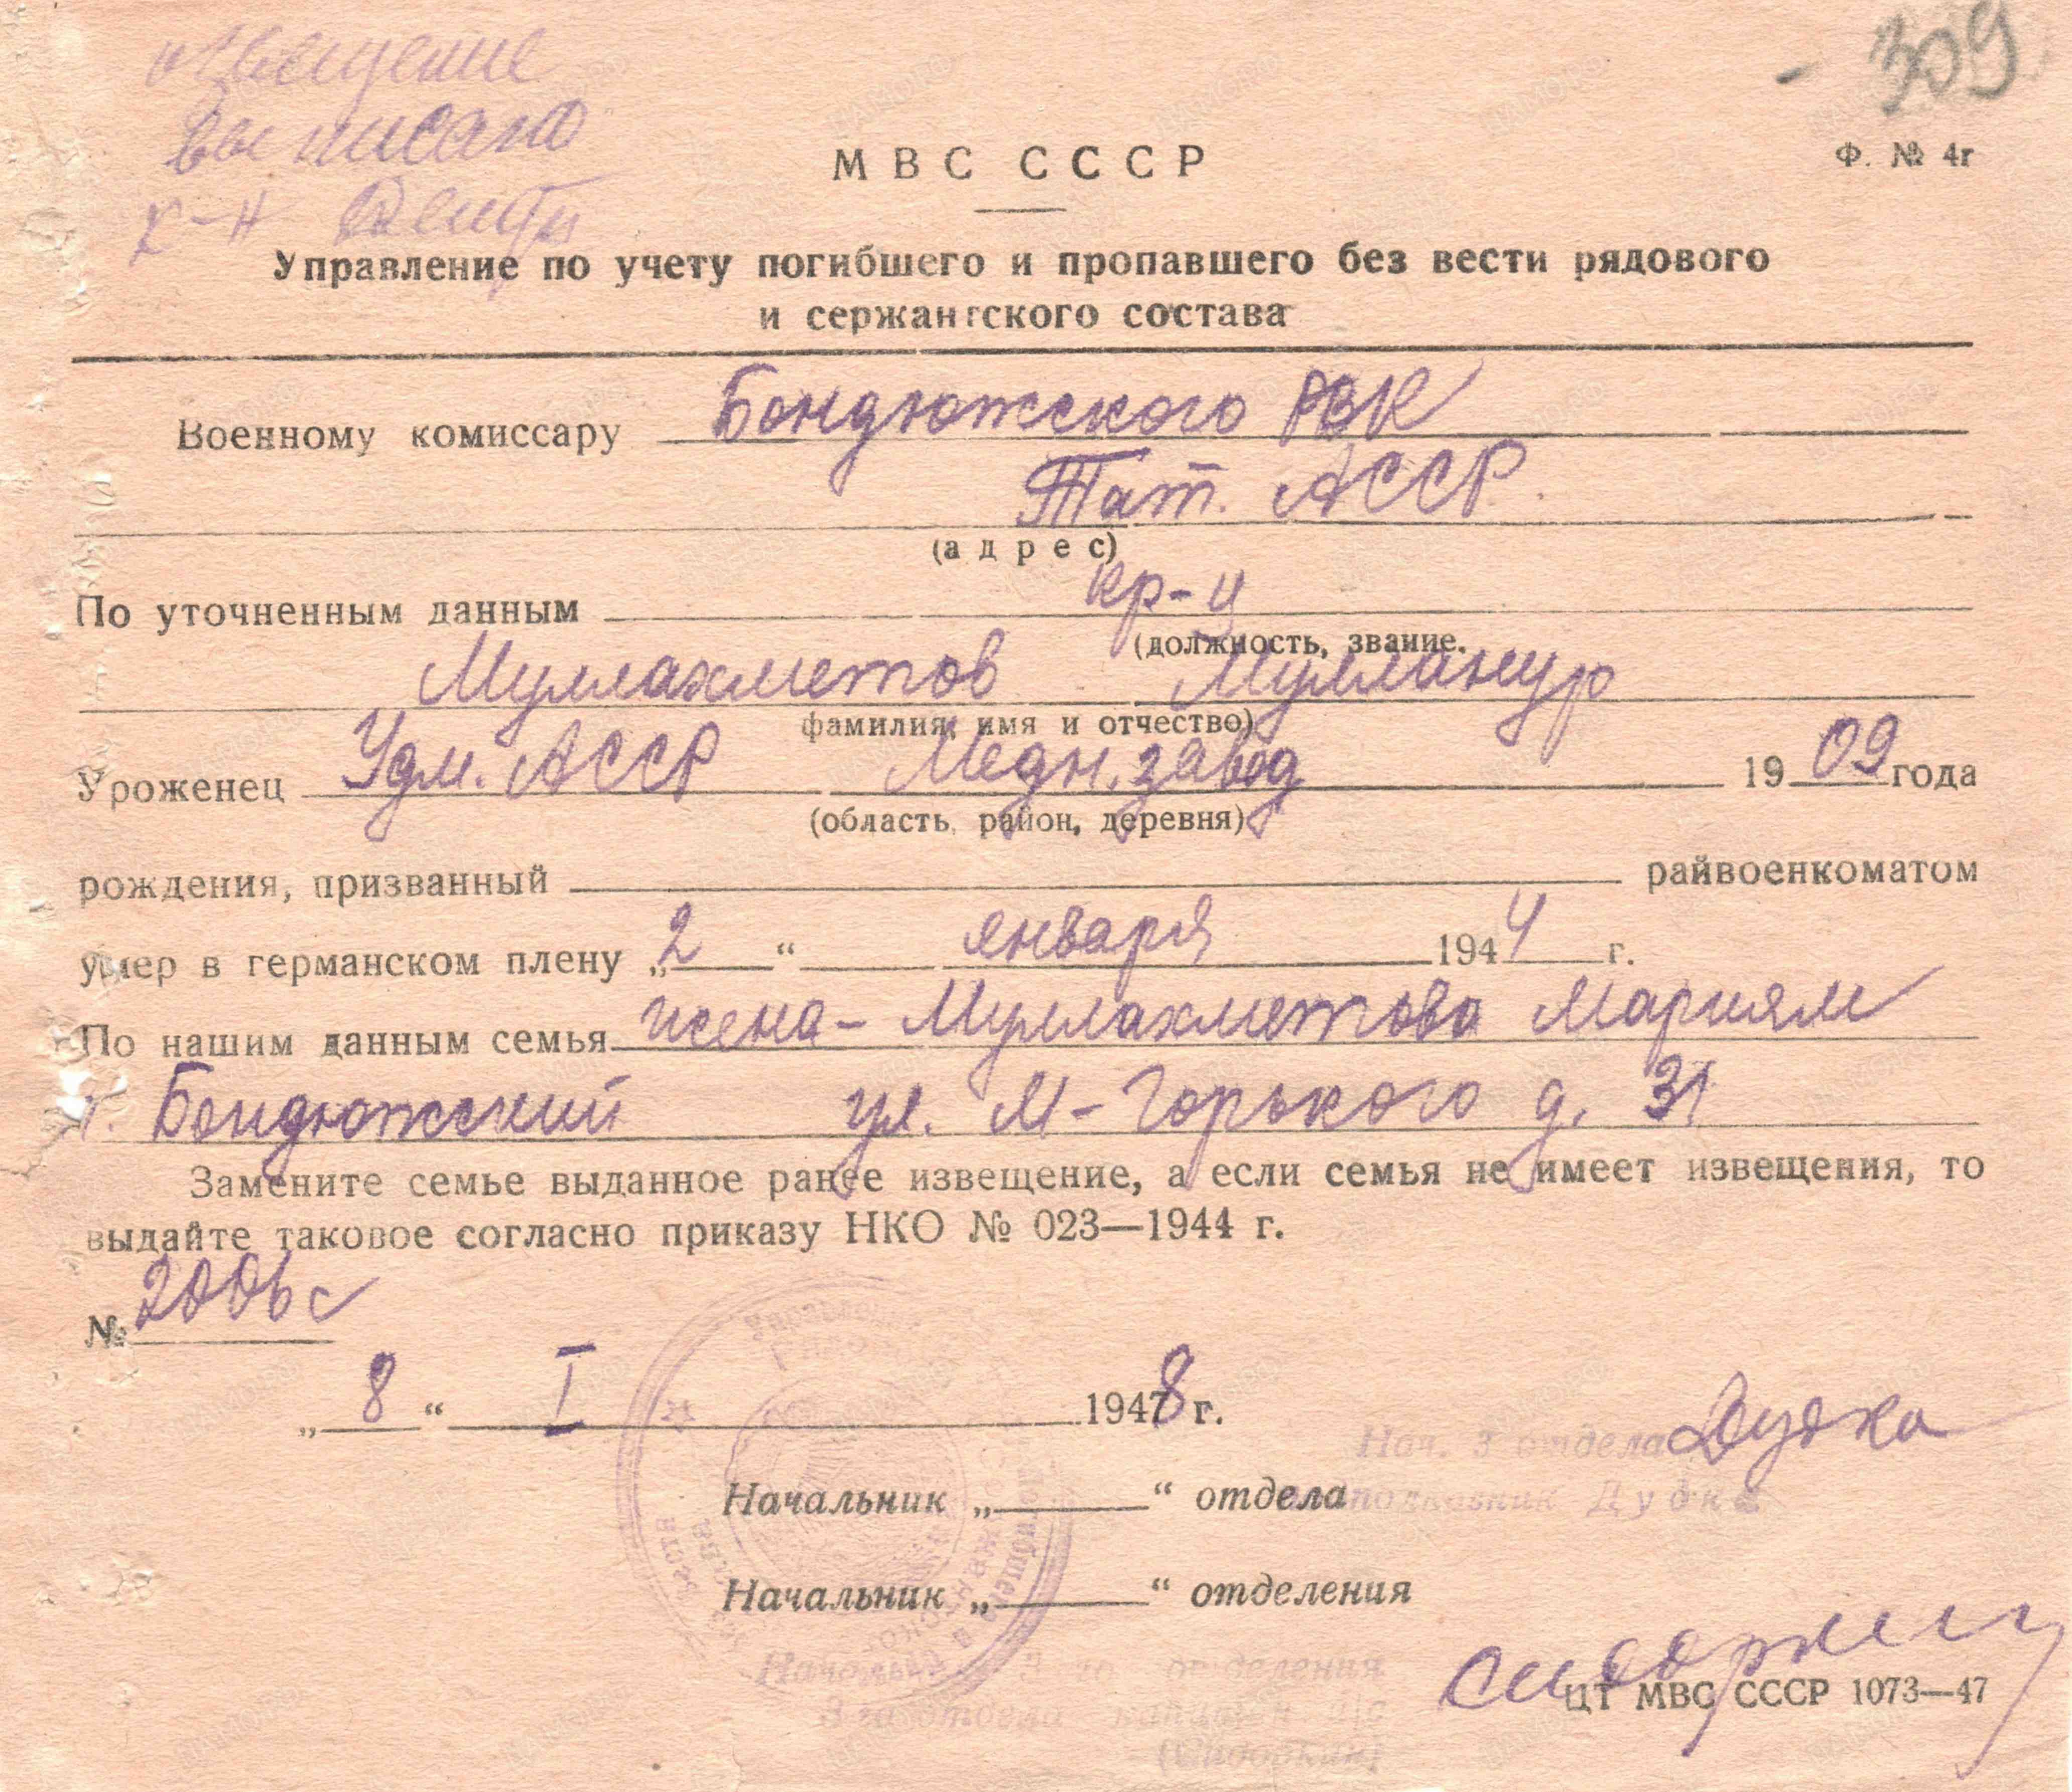 - 309
извещение
выписано
М В С С С С Р
Ф. № 4г
Управление по учету погибшего и пропавшего без вести рядового
и сержантского состава
Военному комиссару Бондюжского РВК
Тат. АССР.
(а д р е с)
По уточненным данным кр-ц
(должность, звание.
Муллахметов Муллянур
фамилия, имя и отчество)
Уроженец Удм. АССР Медн. завод 1909 года
(область, район, деревня)
рождения, призванный райвоенкоматом
умер в германском плену „2“ января 1944 г.
По нашим данным семья жена - Муллахметова Мариям
г. Бондюжский ул. М-Горького д. 31
Замените семье выданное ранее извещение, а если семья не имеет извещения, то
выдайте таковое согласно приказу НКО № 023—1944 г.
№ 2006с
„8“ I 1948 г.
Нач. 3 отдела Дудка
Начальник „ “ отдела
подполковник Дудка
Начальник „ “ отделения
Начальник 3 го отделения
3 го отдела капитан а/с
(Сидоркин)
Сидоркин
ЦТ МВС СССР 1073—47